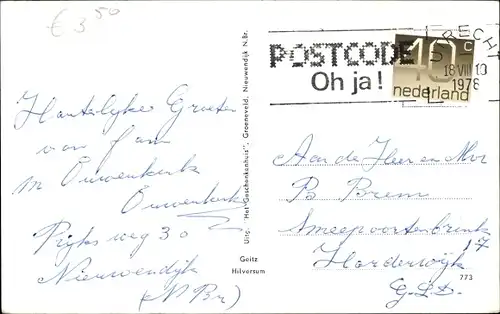 € 3,50
POSTCODE
Oh ja!
UTRECHT
18 VIII 10
1978
10 c
nederland
Hartelijke Groeten
van fam
M Ouwenkerk
Ouwenkerk
Rijksweg 30
Nieuwendijk
(N Br)
Uitg. "Het Geschenkenhuis", Groeneveld, Nieuwendijk N.Br.
Geitz
Hilversum
Aan de Heer en Mvr
B Brem
Smeepoortenbrink
17
Harderwijk
GLD.
773